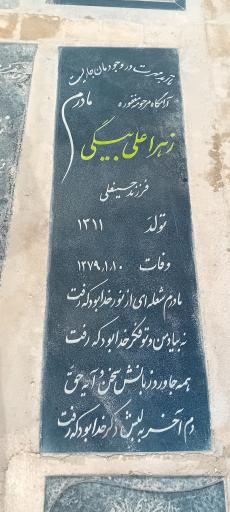 تا زنده‌ست در وجودمان جان
مادرم
آرامگاه مرحومه مغفوره
زهرا علی بیگی
فرزند حسینعلی
تولد ۱۳۱۱
وفات ۱۳۷۹،۱،۱۰
مادرم شعله ای از نور خدا بود که رفت
نه به یاد من و تو فکر خدا بود که رفت
همه جا ورد زبانش سخن و آیه حق
دم آخر به لبش ذکر خدا بود که رفت